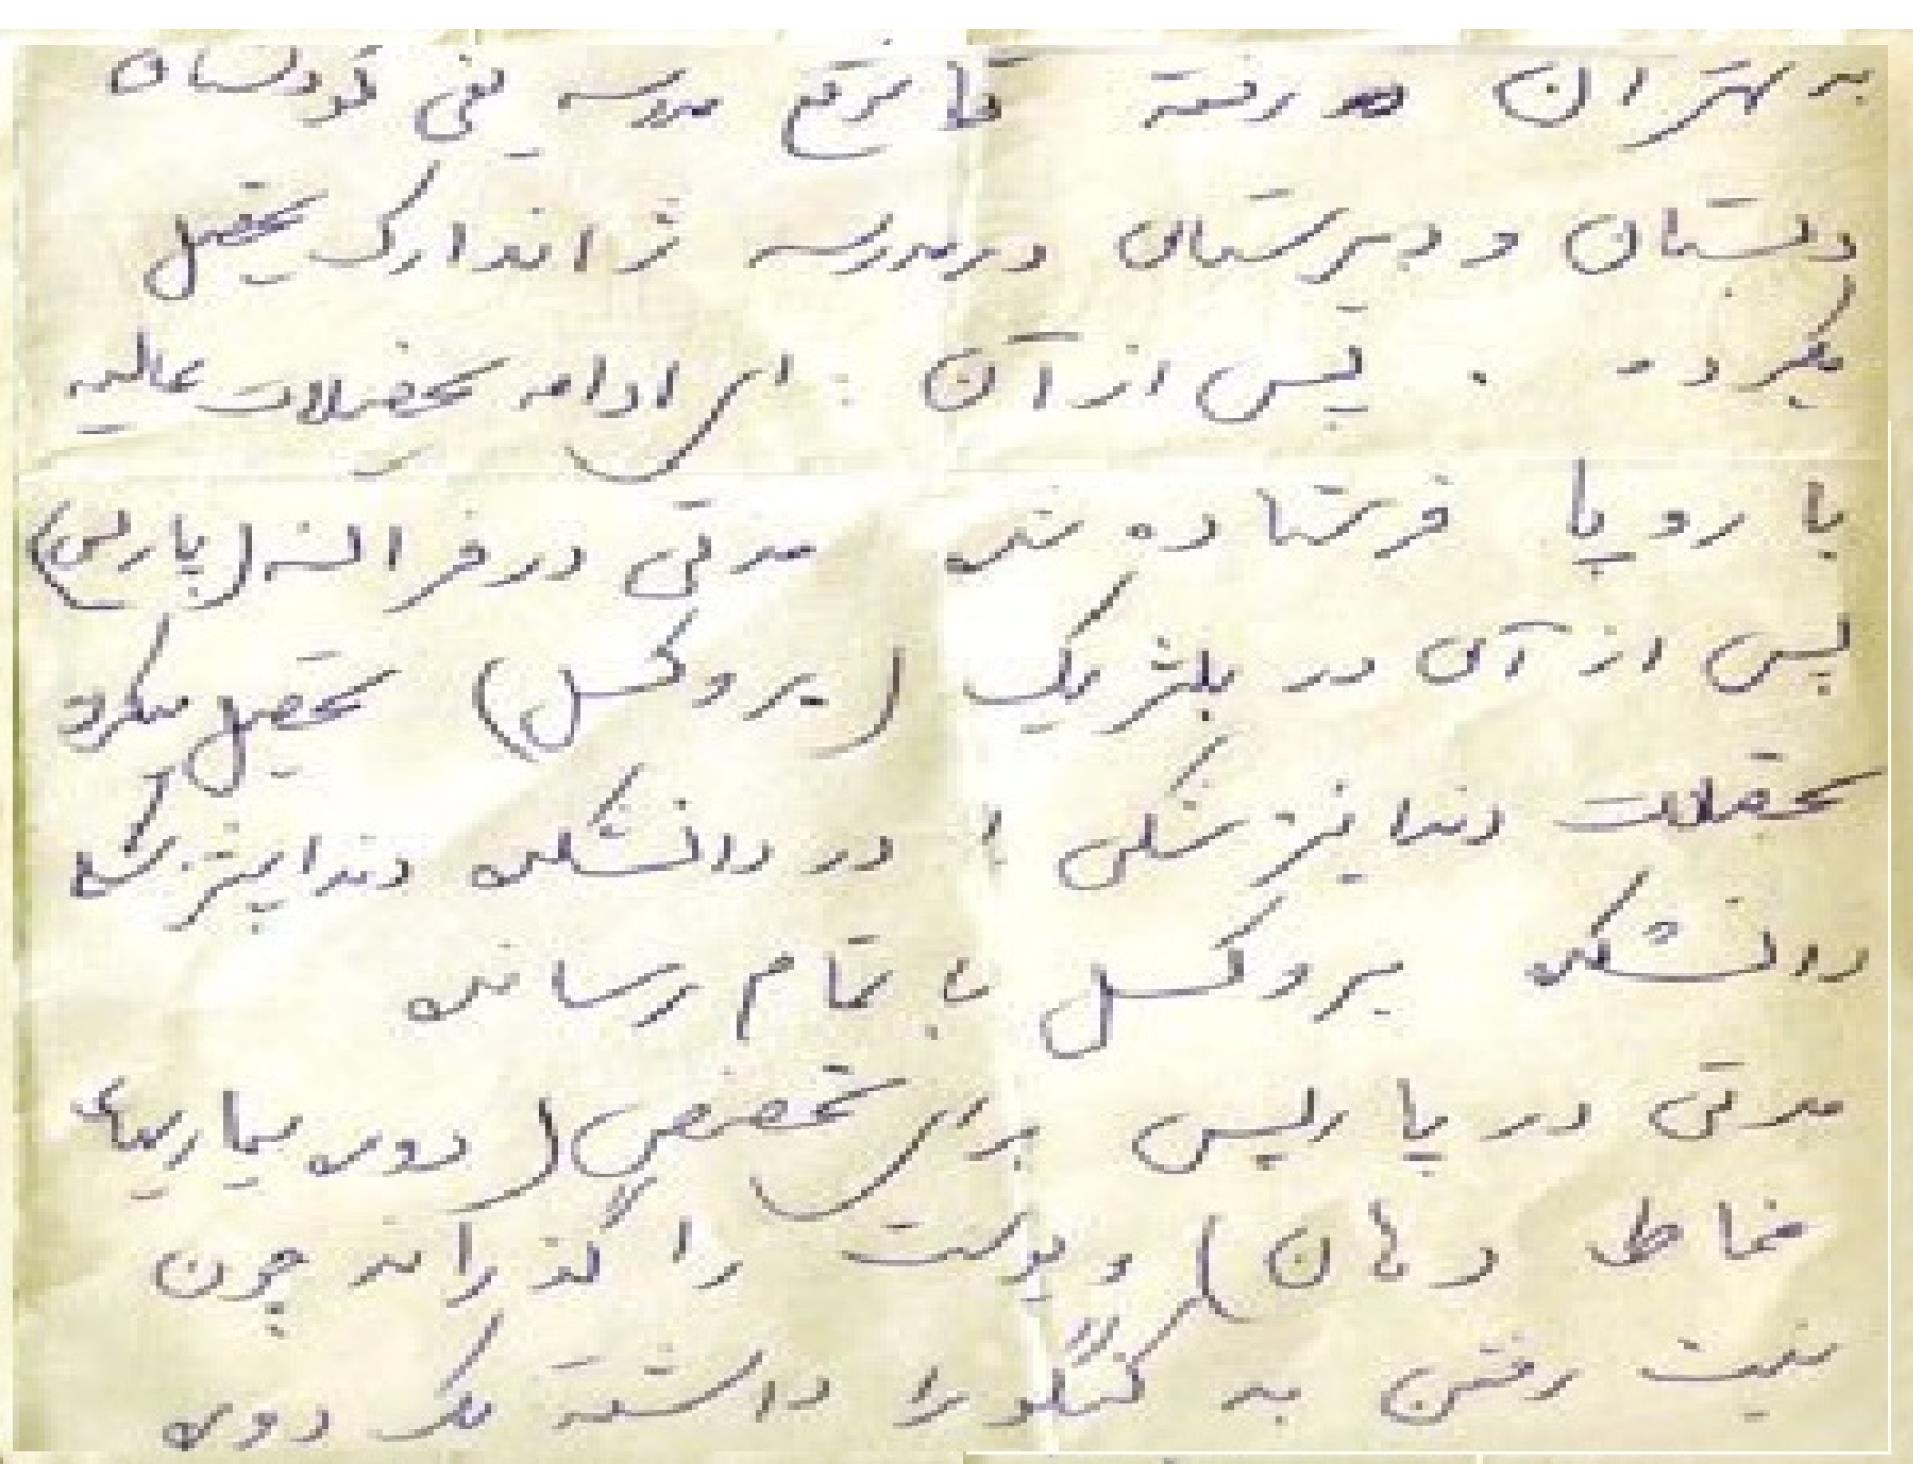 به تهران رفته تا موقع مدرسه یعنی کودکستان
دبستان و دبیرستان در مدرسه ژاندارک تحصیل
بگیرد . پس از آن برای ادامه تحصیلات عالیه
باروپا فرستاده شده مدتی در فرانسه (پاریس)
پس از آن در بلژیک (بروکسل) تحصیل میکرد
تحصیلات دندانپزشکی در دانشکده دندانپزشکی
دانشکده بروکسل با تمام رسانده
مدتی در پاریس برای تخصص (دوره بیماریهای
مخاط دهان) و پوست را گذرانده چون
نیت رفتن به کنگو را داشته یک دوره